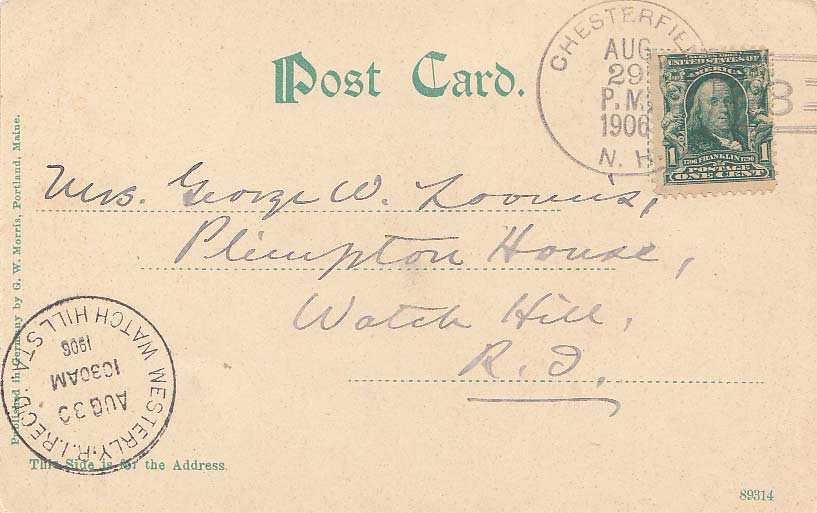 Post Card.
CHESTERFIEL
AUG
29
P.M.
1906
N. H.
8
UNITED STATES OF
AMERICA
1706 FRANKLIN 1790
1 1
POSTAGE
ONE CENT
Mrs. George W. Loomis,
Plimpton House,
Watch Hill,
R. I.
WESTERLY. R.I. REC'D. WATCH HILL STA.
AUG 30
10 30 AM
1906
Published in Germany by G. W. Morris, Portland, Maine.
This Side is for the Address.
89314